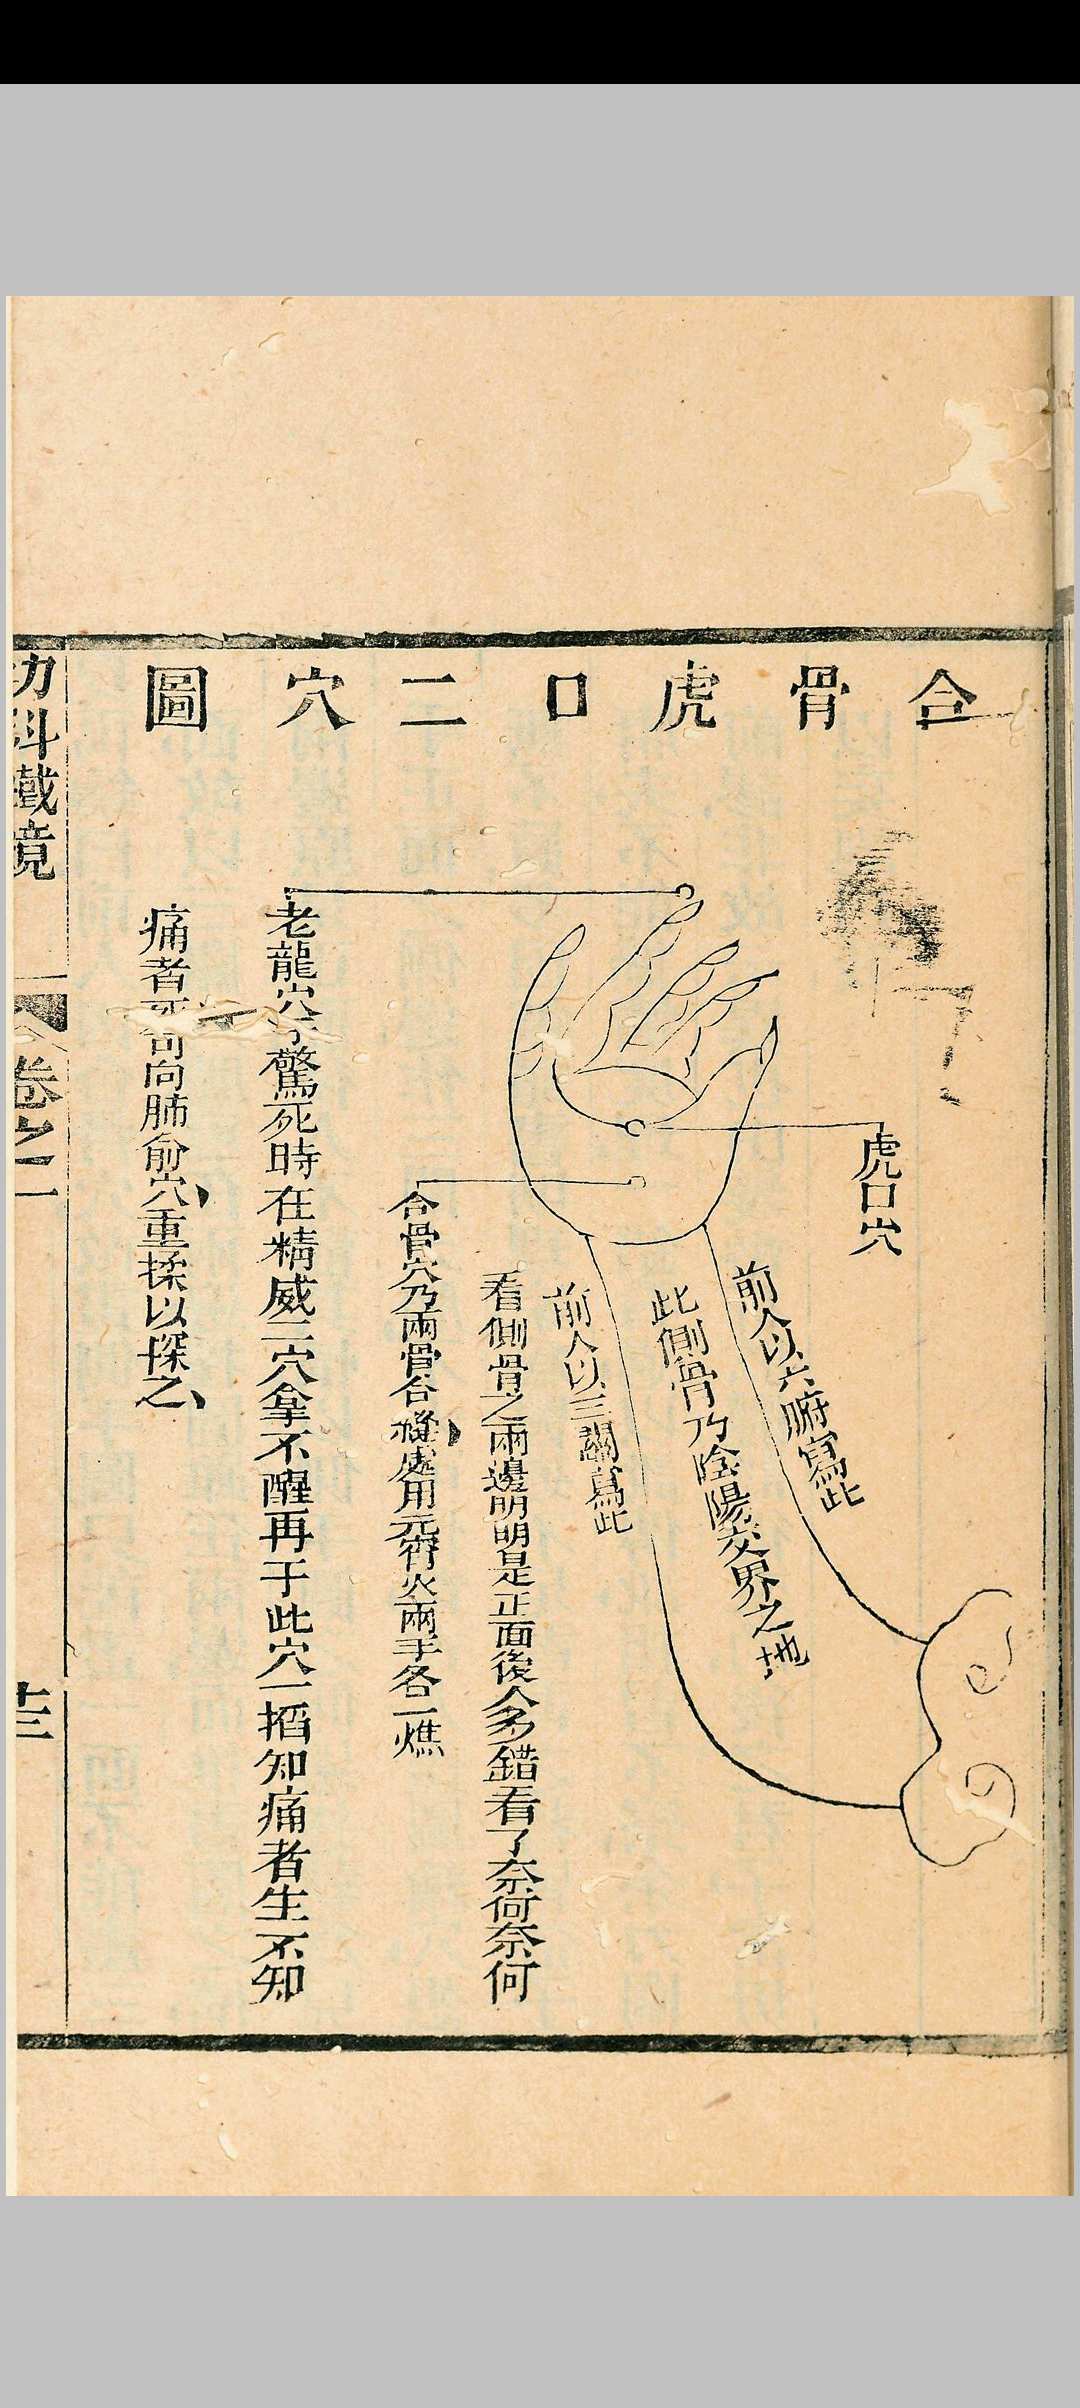 合骨虎口二穴圖
虎口穴
前人以六腑寫此
此側骨乃陰陽交界之地
前人以三關寫此
看側骨之兩邊明明是正面後人多錯看了奈何奈何
合骨穴乃兩骨合縫處用元宵火兩手各一燋
老龍穴 驚死時在精威二穴拿不醒再于此穴一掐知痛者生不知
痛者死 向肺俞穴重揉以探之
幼科鐵鏡
卷之二
十三